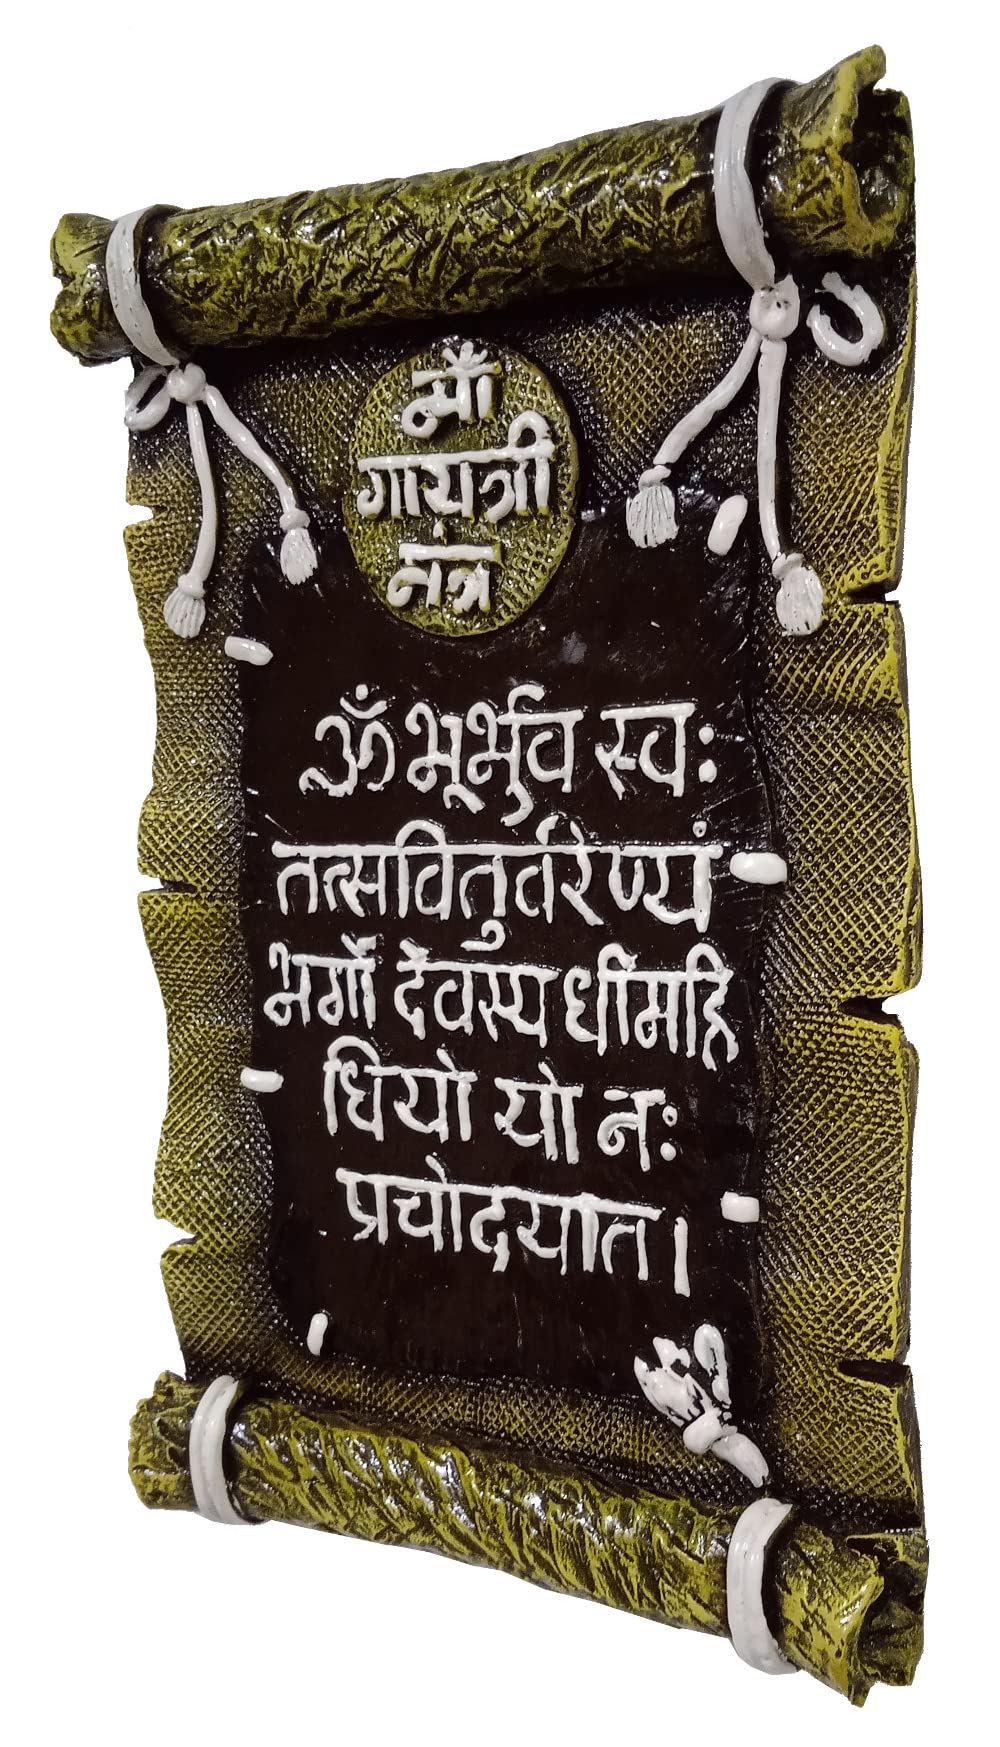 माँ
गायत्री
मंत्र
ॐ भूर्भुव स्व:
तत्सवितुर्वरेण्यं
भर्गो देवस्य धीमहि
धियो यो न:
प्रचोदयात।